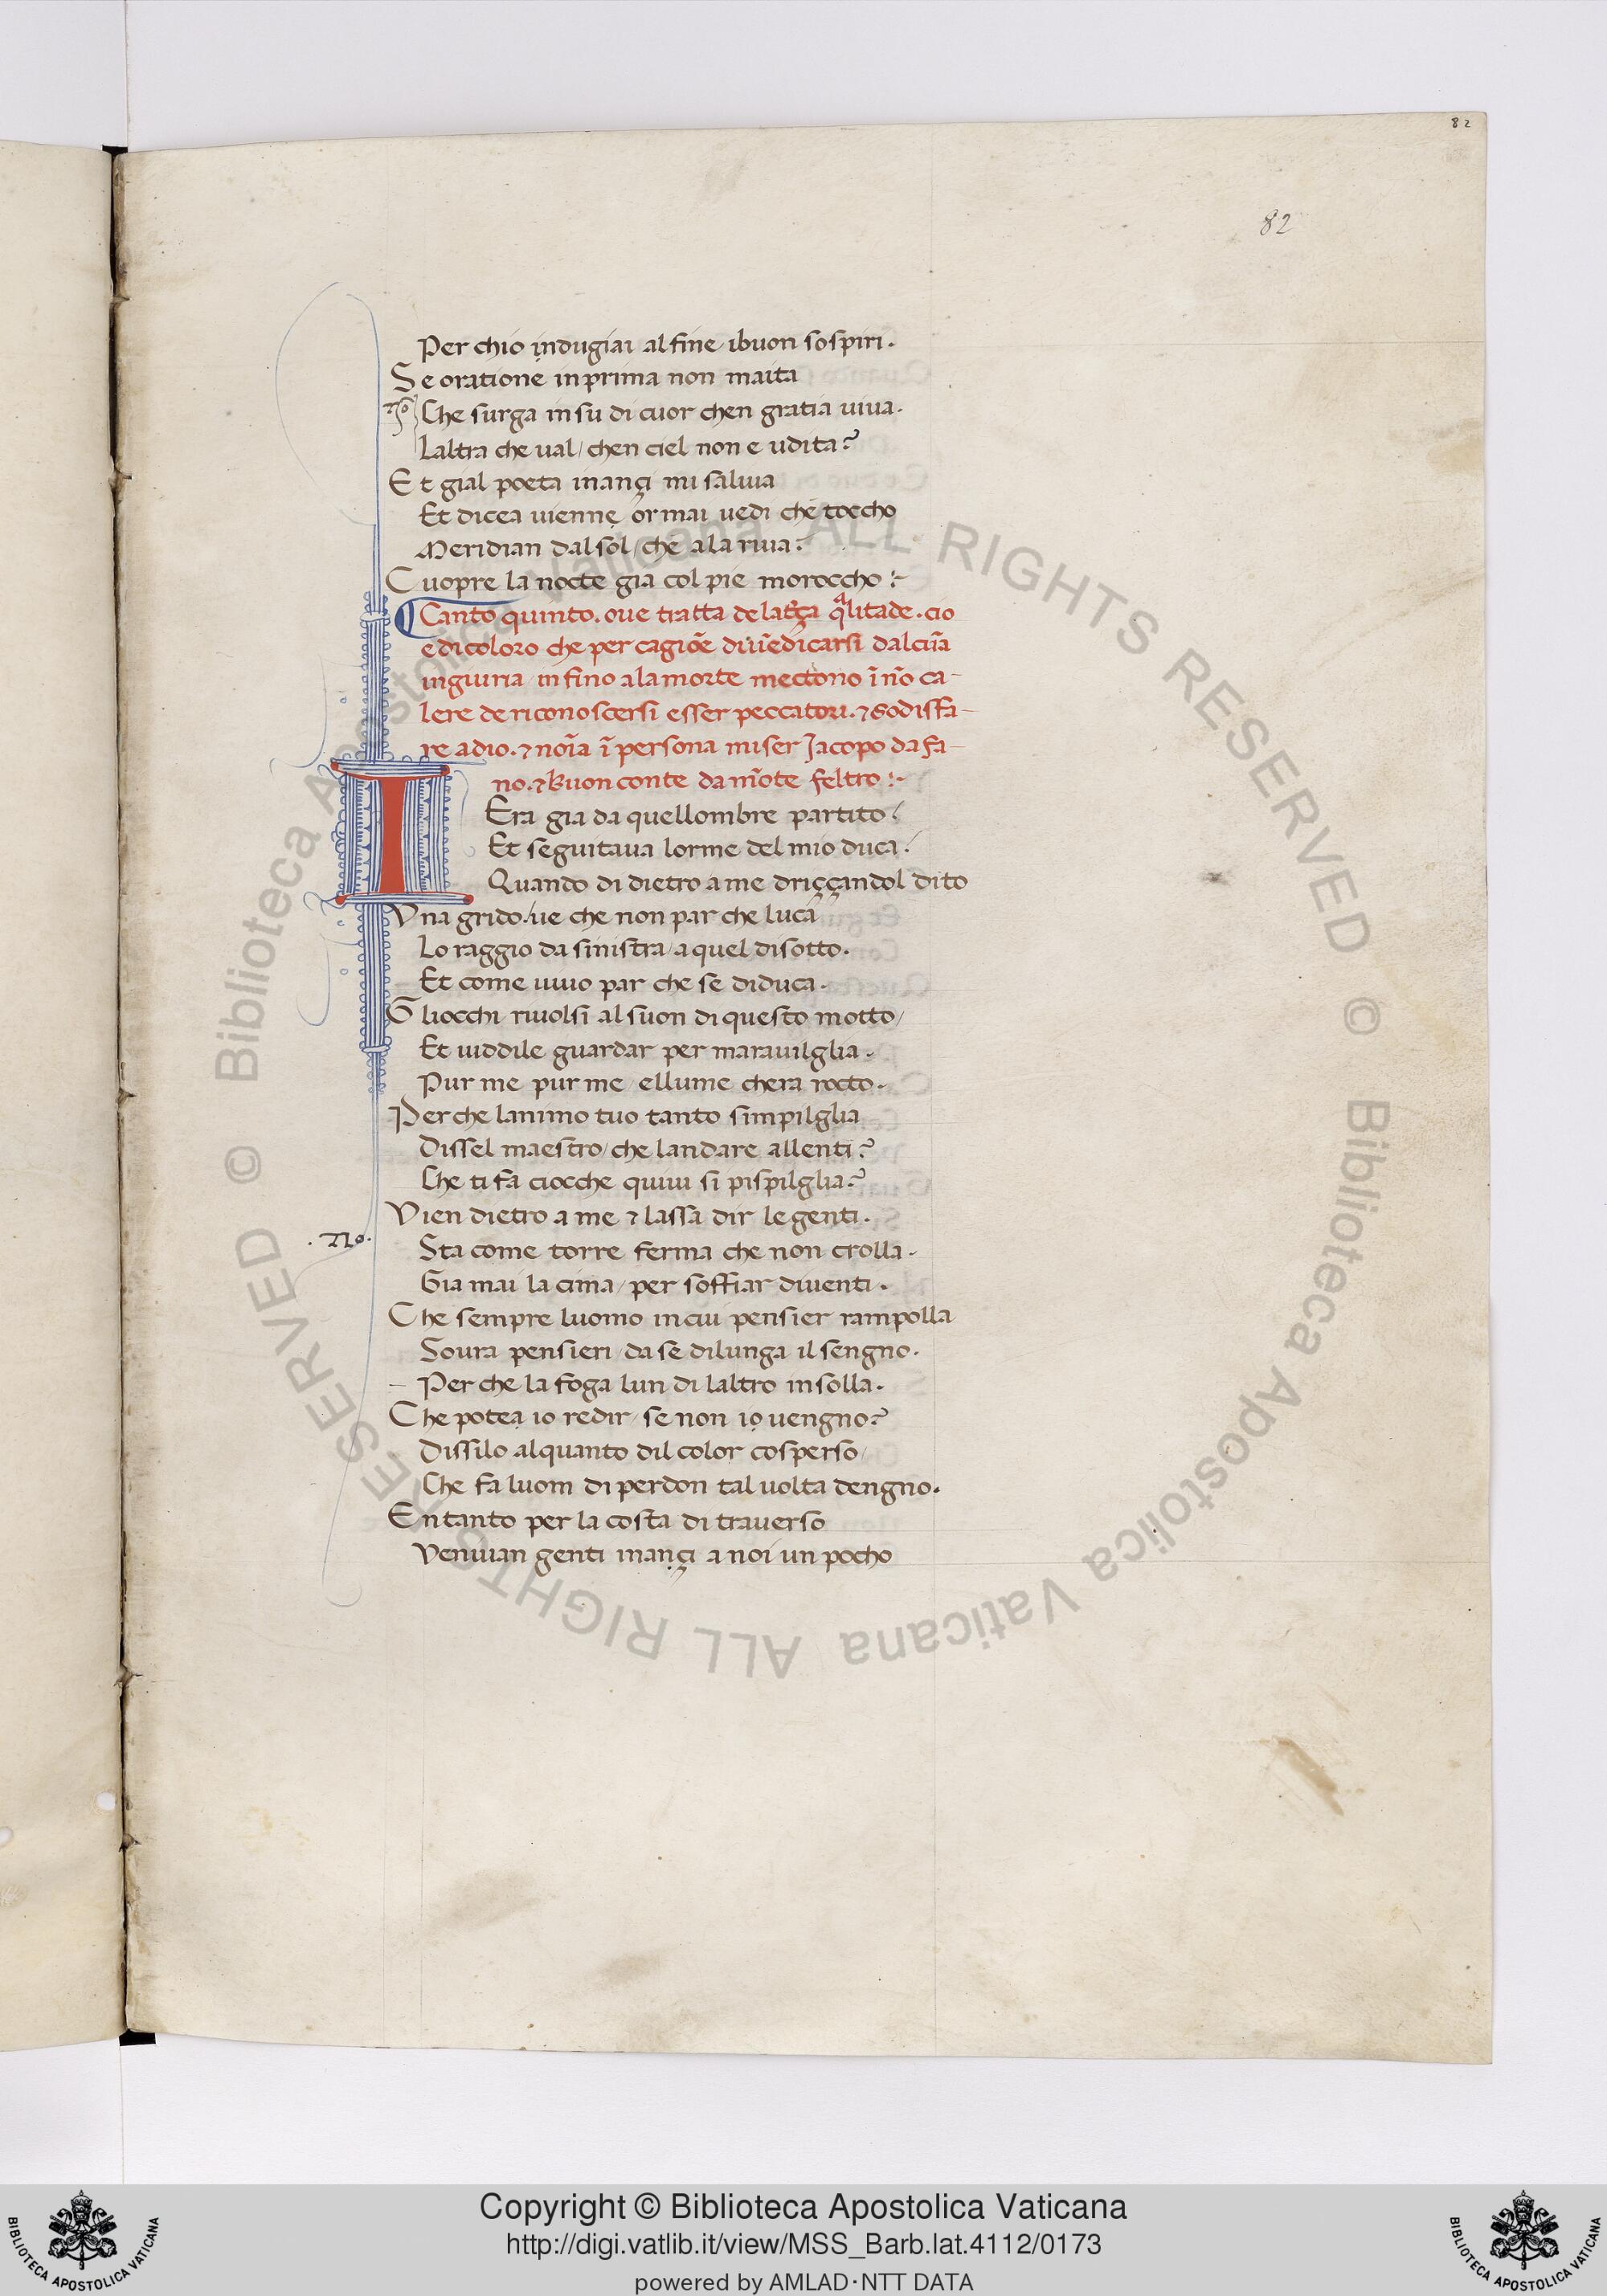 82
82
Per chio indugiai alfine ibuon sospiri.
Se oratione inprima non maita
No Che surga insu di cuor chen gratia uiua.
Laltra che ual / chen ciel non e udita?
Et gial poeta inançi mi saliua
Et dicea uienne ormai uedi che toccho
Meridian dal sol / che ala riua:
Cuopre la nocte gia col pie moroccho :-
Canto quinto. oue tratta de la tr̄ça qalitade. cio
e di coloro che per cagiōe di uēdicarsi dalcūa
ingiuria in fino a la morte mectono ī nō ca-
lere de riconoscersi esser peccatori. ⁊ sodisfa-
re adio. ⁊ noīa ī persona miser Jacopo da fa-
no. ⁊ buon conte da mōte feltro :-
I Era gia da quellombre partito /
Et seguitaua lorme del mio duca.
Quando di dietro a me driççandol dito
Vna grido. ue che non par che luca
Lo raggio da sinistra / a quel disotto.
Et come uiuo par che se diduca.
Gliocchi riuolsi al suon di questo motto /
Et uiddile guardar per marauilglia.
Pur me pur me / ellume chera rocto.
Perche lanimo tuo tanto simpilglia
Dissel maestro / che landare allenti?
Che ti fa ciocche quiui si pispilglia?
Vien dietro a me ⁊ lassa dir le genti.
.No. Sta come torre ferma che non crolla.
Gia mai la cima / per soffiar diuenti.
Che sempre luomo incui pensier rampolla
Soura pensieri / da se dilunga il sengno.
Per che la foga lun di laltro insolla.
Che potea io redir / se non io uengno?
Dissilo alquanto dil color cosperso /
Che fa luom di perdon tal uolta dengno.
Entanto per la costa di trauerso
Veniuan genti inançi a noi un pocho
© Biblioteca Apostolica Vaticana ALL RIGHTS RESERVED © Biblioteca Apostolica Vaticana ALL RIGHTS RESERVED
Copyright © Biblioteca Apostolica Vaticana
http://digi.vatlib.it/view/MSS_Barb.lat.4112/0173
powered by AMLAD·NTT DATA
BIBLIOTECA APOSTOLICA VATICANA
BIBLIOTECA APOSTOLICA VATICANA